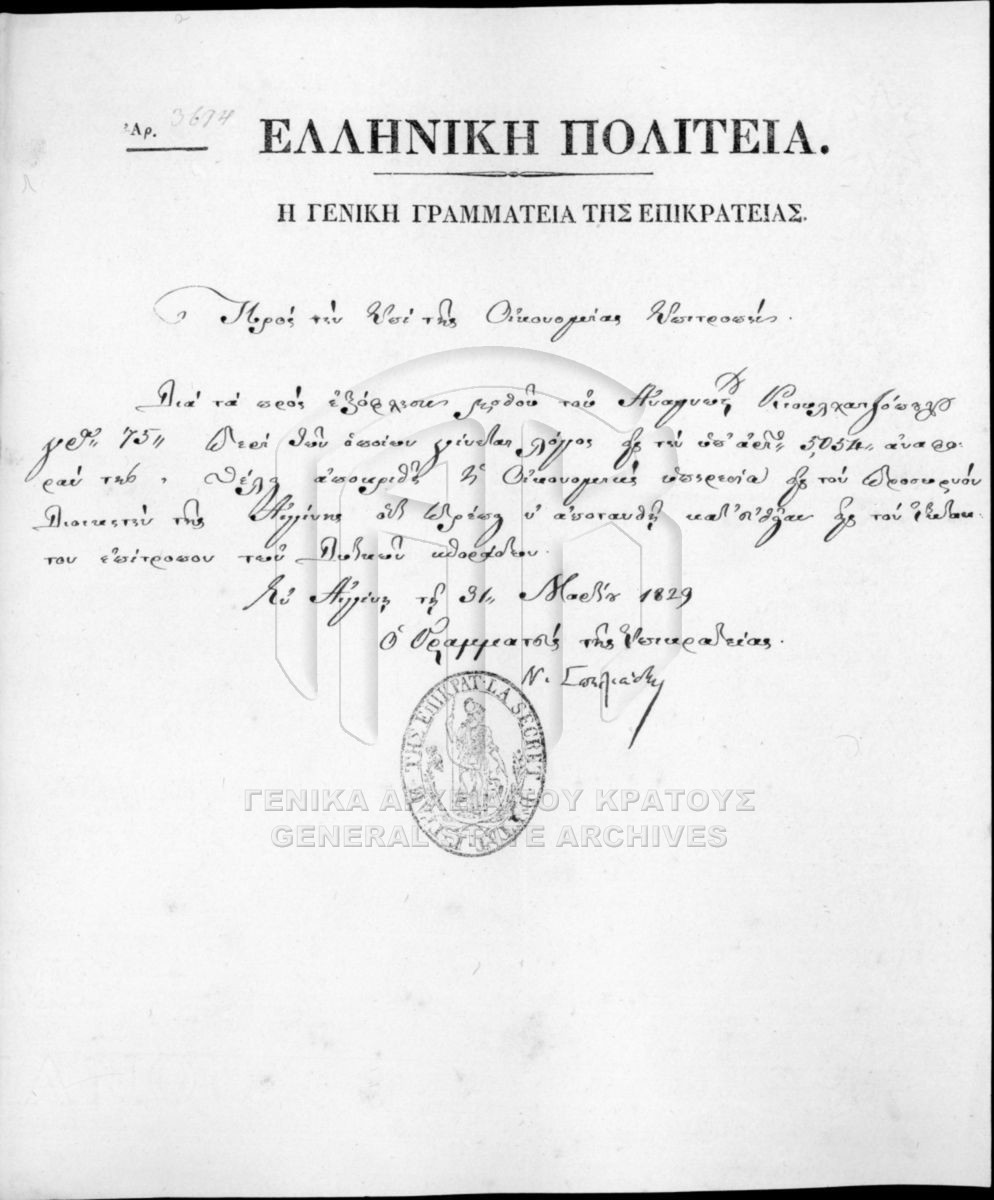 Ἀρ. 3694
ΕΛΛΗΝΙΚΗ ΠΟΛΙΤΕΙΑ.
Η ΓΕΝΙΚΗ ΓΡΑΜΜΑΤΕΙΑ ΤΗΣ ΕΠΙΚΡΑΤΕΙΑΣ.
Πρὸς τὴν Ἐπὶ τῆς Οἰκονομίας Ἐπιτροπήν.
Διὰ τὰ πρὸς ἐξόφλησιν μισθοῦ τοῦ Ἀναγνώς
75,, περὶ τῶν ὁποίων γίνεται λόγος εἰς τὴν ὑπ' ἀριθ. 5054,, ἀναφο-
ράν της, θέλει ἀποκριθῆ ἡ Οἰκονομικὴ ὑπηρεσία εἰς τὸν προσωρινὸν
Διοικητὴν τῆς Αἰγίνης ὅτι πρέπει ν' ἀποτανθῇ κατ' εὐθεῖαν εἰς τὸν Ἔκτακ-
τον ἐπίτροπον τῶν Δυτικῶν Σποράδων.
Ἐν Αἰγίνῃ τῇ 31,, Μαρτίου 1829
Ὁ Γραμματεὺς τῆς Ἐπικρατείας.
Ν. Σπηλιάδης
ΤΗΣ ΕΠΙΚΡΑΤ. LA SECRET. D'ETAT
ΓΕΝΙΚΑ ΑΡΧΕΙΑ ΤΟΥ ΚΡΑΤΟΥΣ
GENERAL STATE ARCHIVES